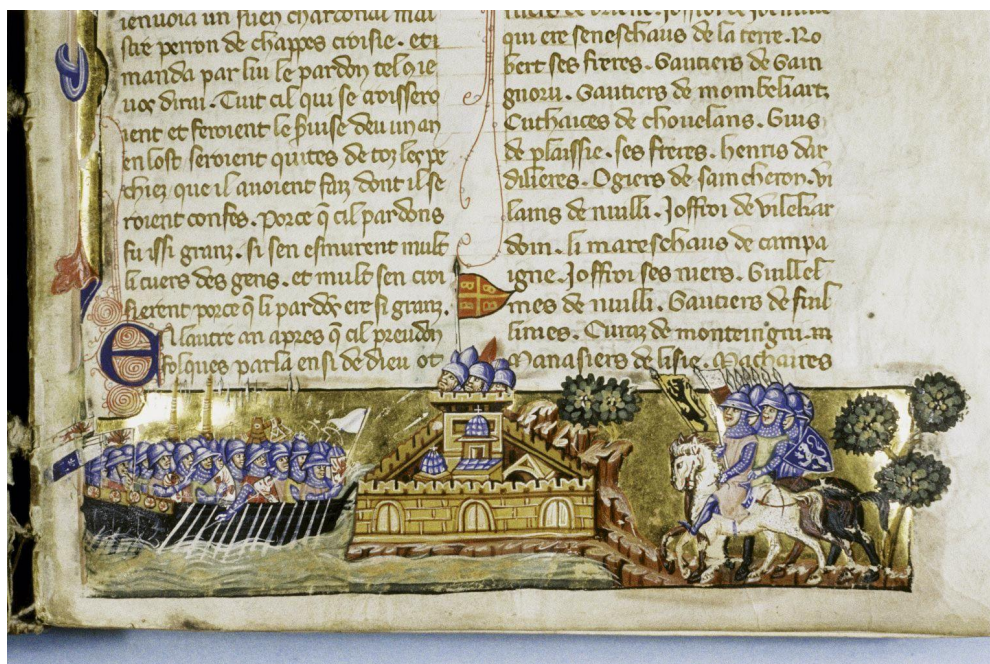 ienuoia un suen chardonal mai
stre perron de chappes croisie. et i
manda par lui le pardon tel q̄ ie
uoȝ dirai. Tuit cil qui se croissero
ient et feroient le seruise deu un an
en lost seroient quites de toz les pe
chiez que il auoient faiz dont il se
roient confes. Porce q̄ cil pardons
fu issi granz. si sen esmurent mult
li cuers des gens. et mult sen croi
sierent porce q̄ li pardōs ere si granz.
En lautre an apres q̄ cil preudon
folques parla ensi de dieu ot
qui ere seneschaus de la terre. Ro
bert ses freres. Gautiers de Gain
gnoru. Gautiers de mombeliart
Euthaices de chouelans. Guis
de plaissie. ses freres. henris dar
dilieres. Ogiers de saincheron. vi
lains de nuilli. Joffroi de vilehar
doin. li mareschaus de campa
igne. Joffroi ses niers. Guillel
mes de nuilli. Gautiers de fuil
limes. Curaz de monteingni. m
Manasiers de lisie. Machaires